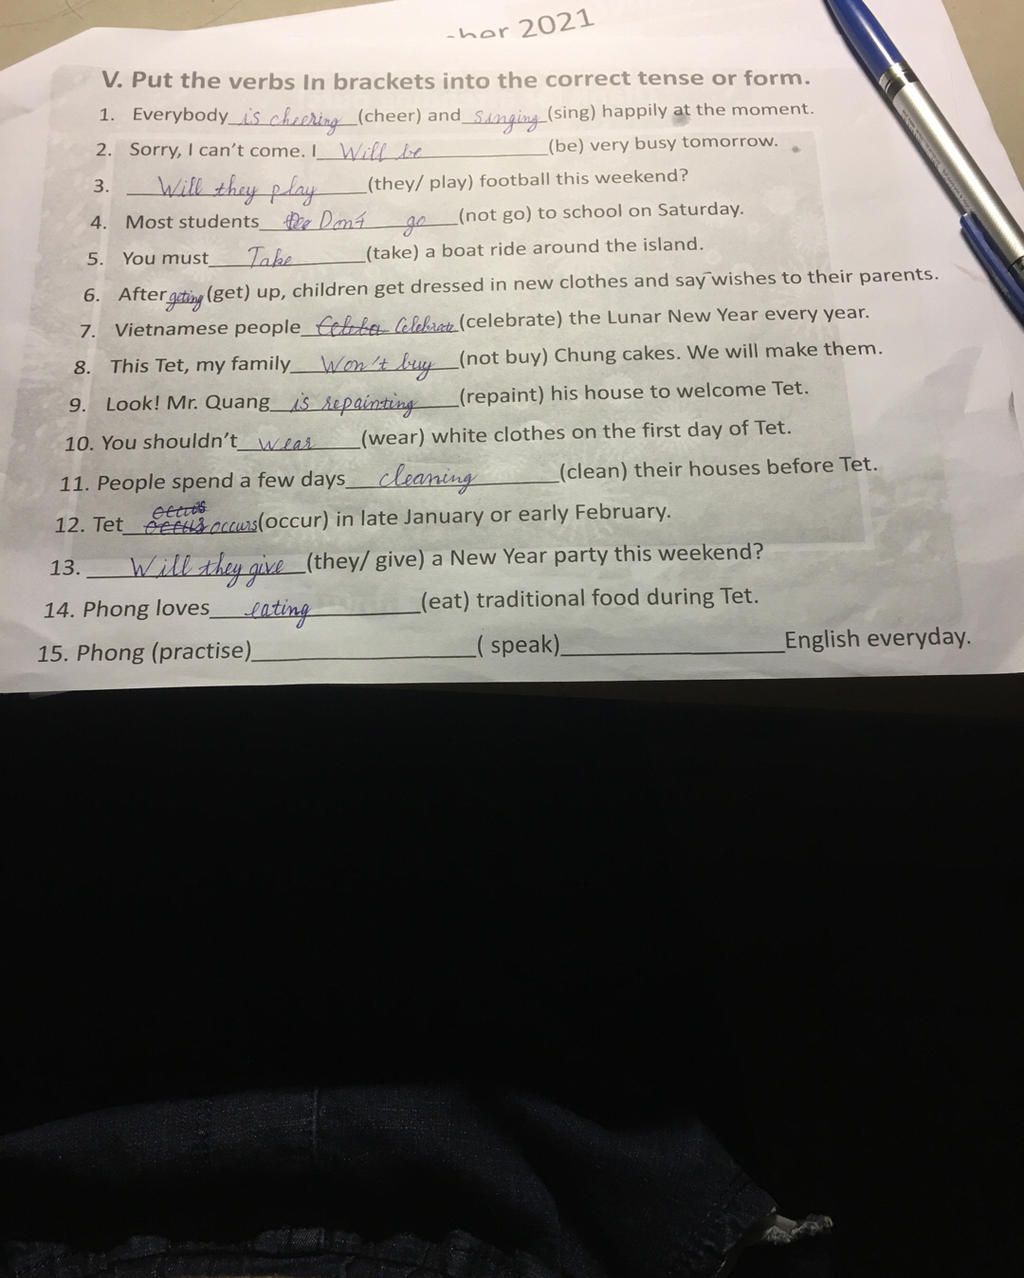 ber 2021
V. Put the verbs In brackets into the correct tense or form.
1. Everybody is cheering (cheer) and singing (sing) happily at the moment.
2. Sorry, I can't come. I Will be (be) very busy tomorrow.
3. Will they play (they/ play) football this weekend?
4. Most students Don't go (not go) to school on Saturday.
5. You must Take (take) a boat ride around the island.
6. After geting (get) up, children get dressed in new clothes and say wishes to their parents.
7. Vietnamese people Celebrate (celebrate) the Lunar New Year every year.
8. This Tet, my family Won't buy (not buy) Chung cakes. We will make them.
9. Look! Mr. Quang is repainting (repaint) his house to welcome Tet.
10. You shouldn't wear (wear) white clothes on the first day of Tet.
11. People spend a few days cleaning (clean) their houses before Tet.
12. Tet occurs (occur) in late January or early February.
13. Will they give (they/ give) a New Year party this weekend?
14. Phong loves eating (eat) traditional food during Tet.
15. Phong (practise)____________( speak)____________English everyday.